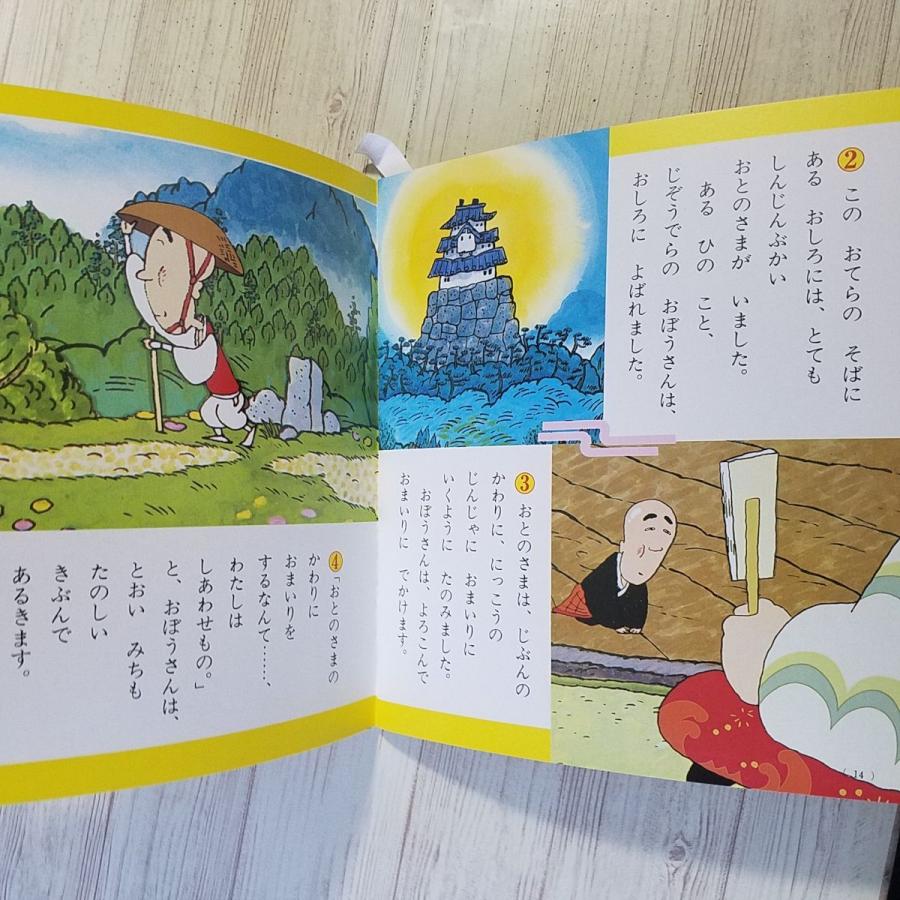 ② この おてらの そばに
ある おしろには、とても
しんじんぶかい
おとのさまが いました。
ある ひの こと、
じぞうでらの おぼうさんは、
おしろに よばれました。
③ おとのさまは、じぶんの
かわりに、にっこうの
じんじゃに おまいりに
いくように たのみました。
おぼうさんは、よろこんで
おまいりに でかけます。
④「おとのさまの
かわりに
おまいりを
するなんて……、
わたしは
しあわせもの。」
と、おぼうさんは、
とおい みちも
たのしい
きぶんで
あるきます。
( 14 )